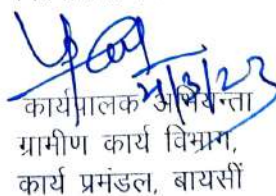 21/3/23
कार्यपालक अभियन्ता
ग्रामीण कार्य विभाग,
कार्य प्रमंडल, बायसीं